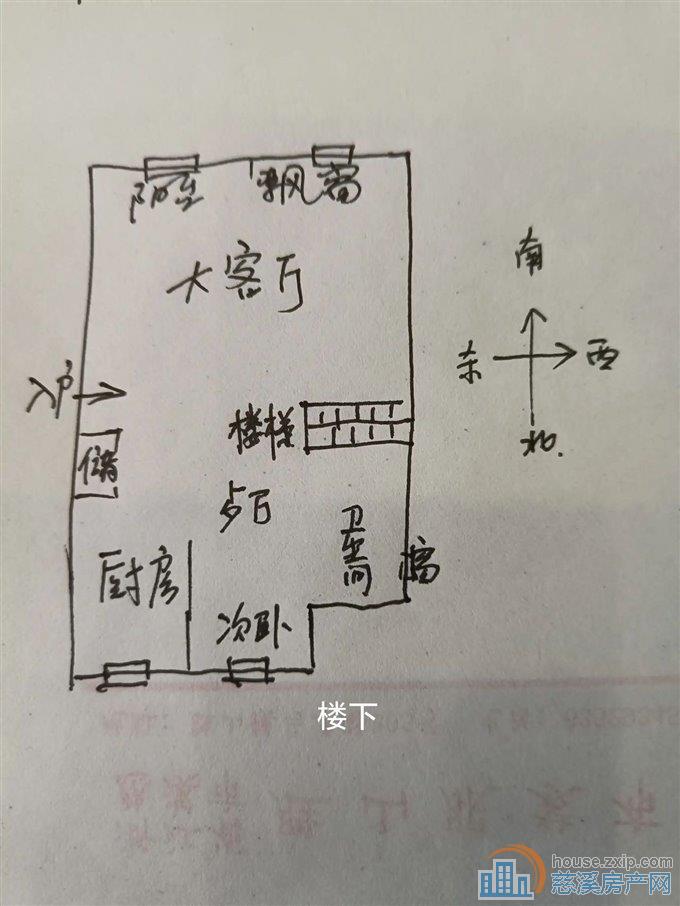 阳台 飘窗
大客厅
南
东 西
北
入户
楼梯
储
歺厅
卫生间
窗
厨房
次卧
楼下
house.zxip.com
慈溪房产网